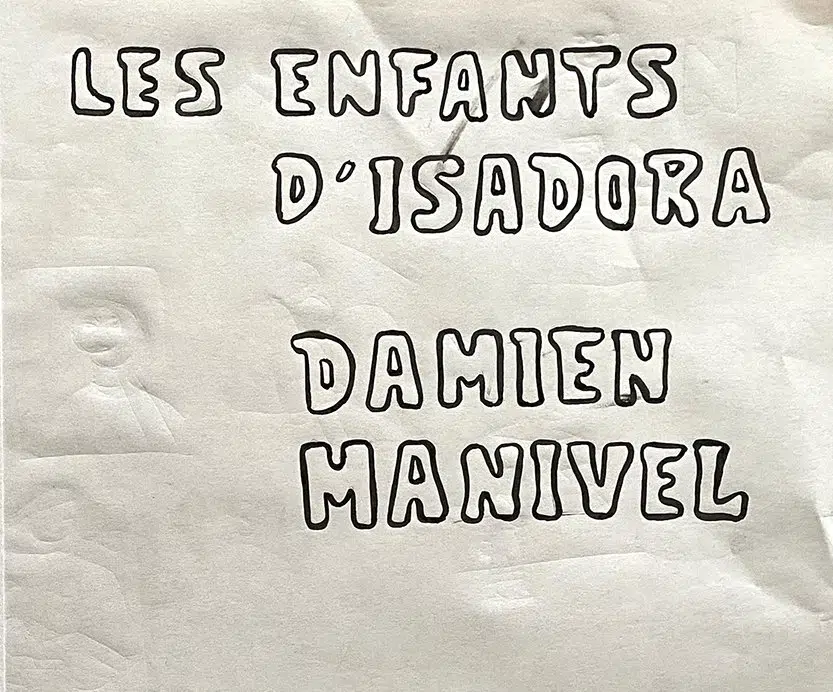 LES ENFANTS
D'ISADORA
DAMIEN
MANIVEL